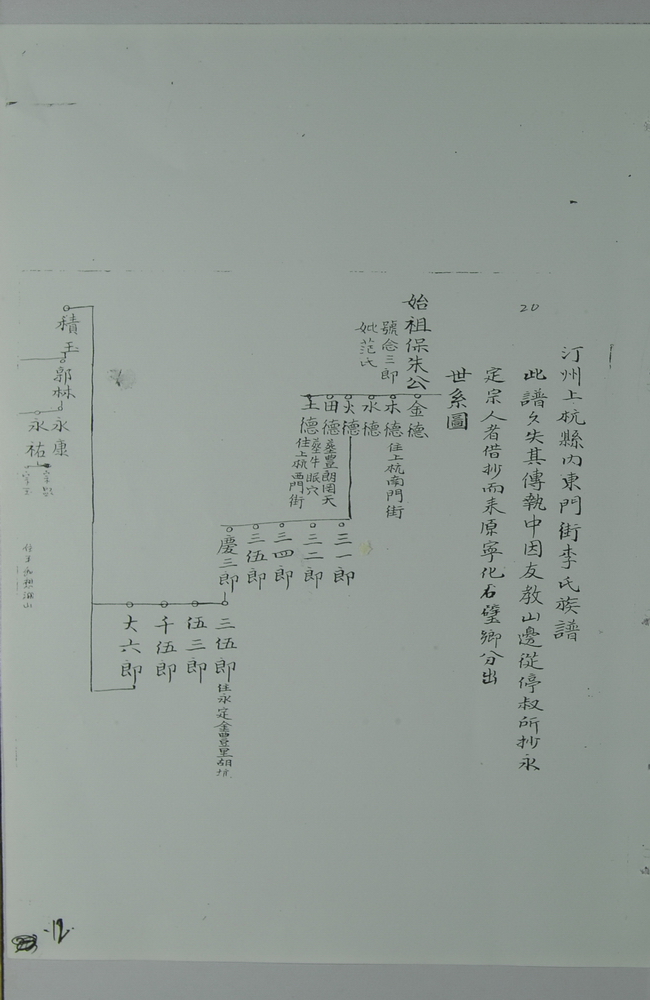 20
汀州上杭縣內東門街李氏族譜
此譜久失其傳執中因友教山邊從停叔所抄永
定宗人者借抄而来原寧化石壁鄉分出
世系圖
始祖保朱公
號念三郎
妣范氏
金德
木德住上杭南門街
水德
火德
田德葬豐朗岡天
葬牛眠穴
土德住上杭西門街
三一郎
三二郎
三四郎
三伍郎
慶三郎
三伍郎住永定金豐里胡坑
伍三郎
千伍郎
大六郎
積玉
郭林
永康
永祐
12